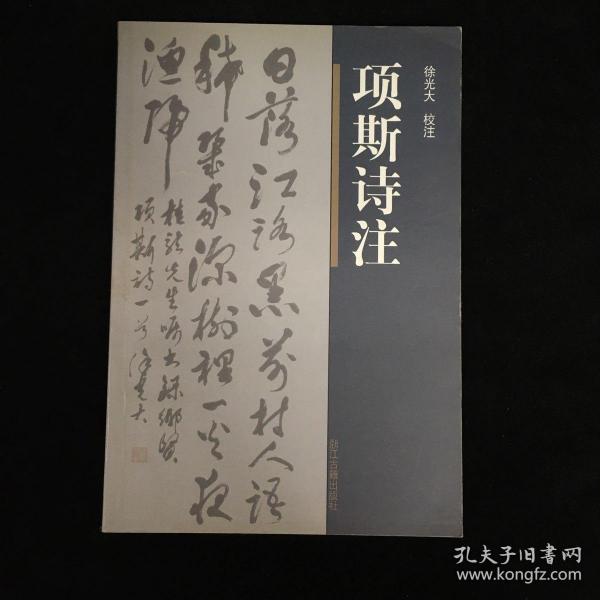 徐光大 校注
项斯诗注
浙江古籍出版社
日落江路黑前村人語
稀幾家深樹裡一火夜
漁歸
先生嘱书録鄉賢
项斯诗一首徐光大
孔夫子旧书网
www.kongfz.com